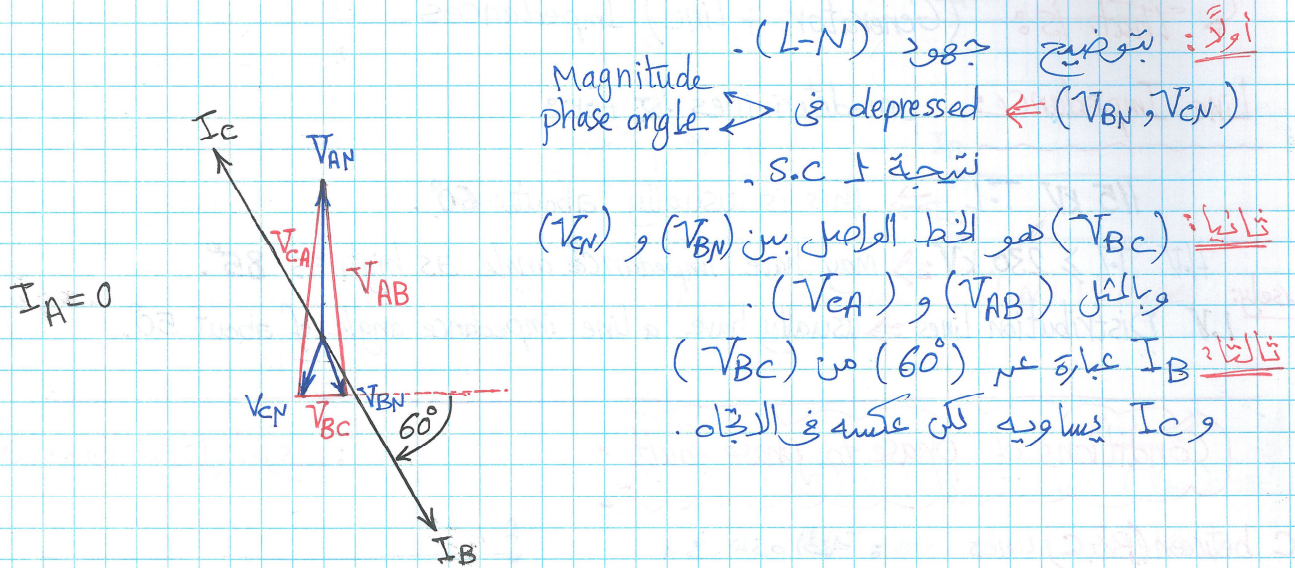 أولاً: بتوضيح جهود (L-N).
(VBN, VCN) ⇐ depressed فى
Magnitude
phase angle
نتيجة لـ S.C.
ثانيا: (VBC) هو الخط الواصل بين (VBN) و (VCN)
وبالمثل (VAB) و (VCA).
ثالثا: IB عبارة عن (60°) من (VBC)
و IC يساويه لكن عكسه فى الاتجاه.
IC
VAN
VCA
VAB
IA=0
VCN
VBC
VBN
60°
IB